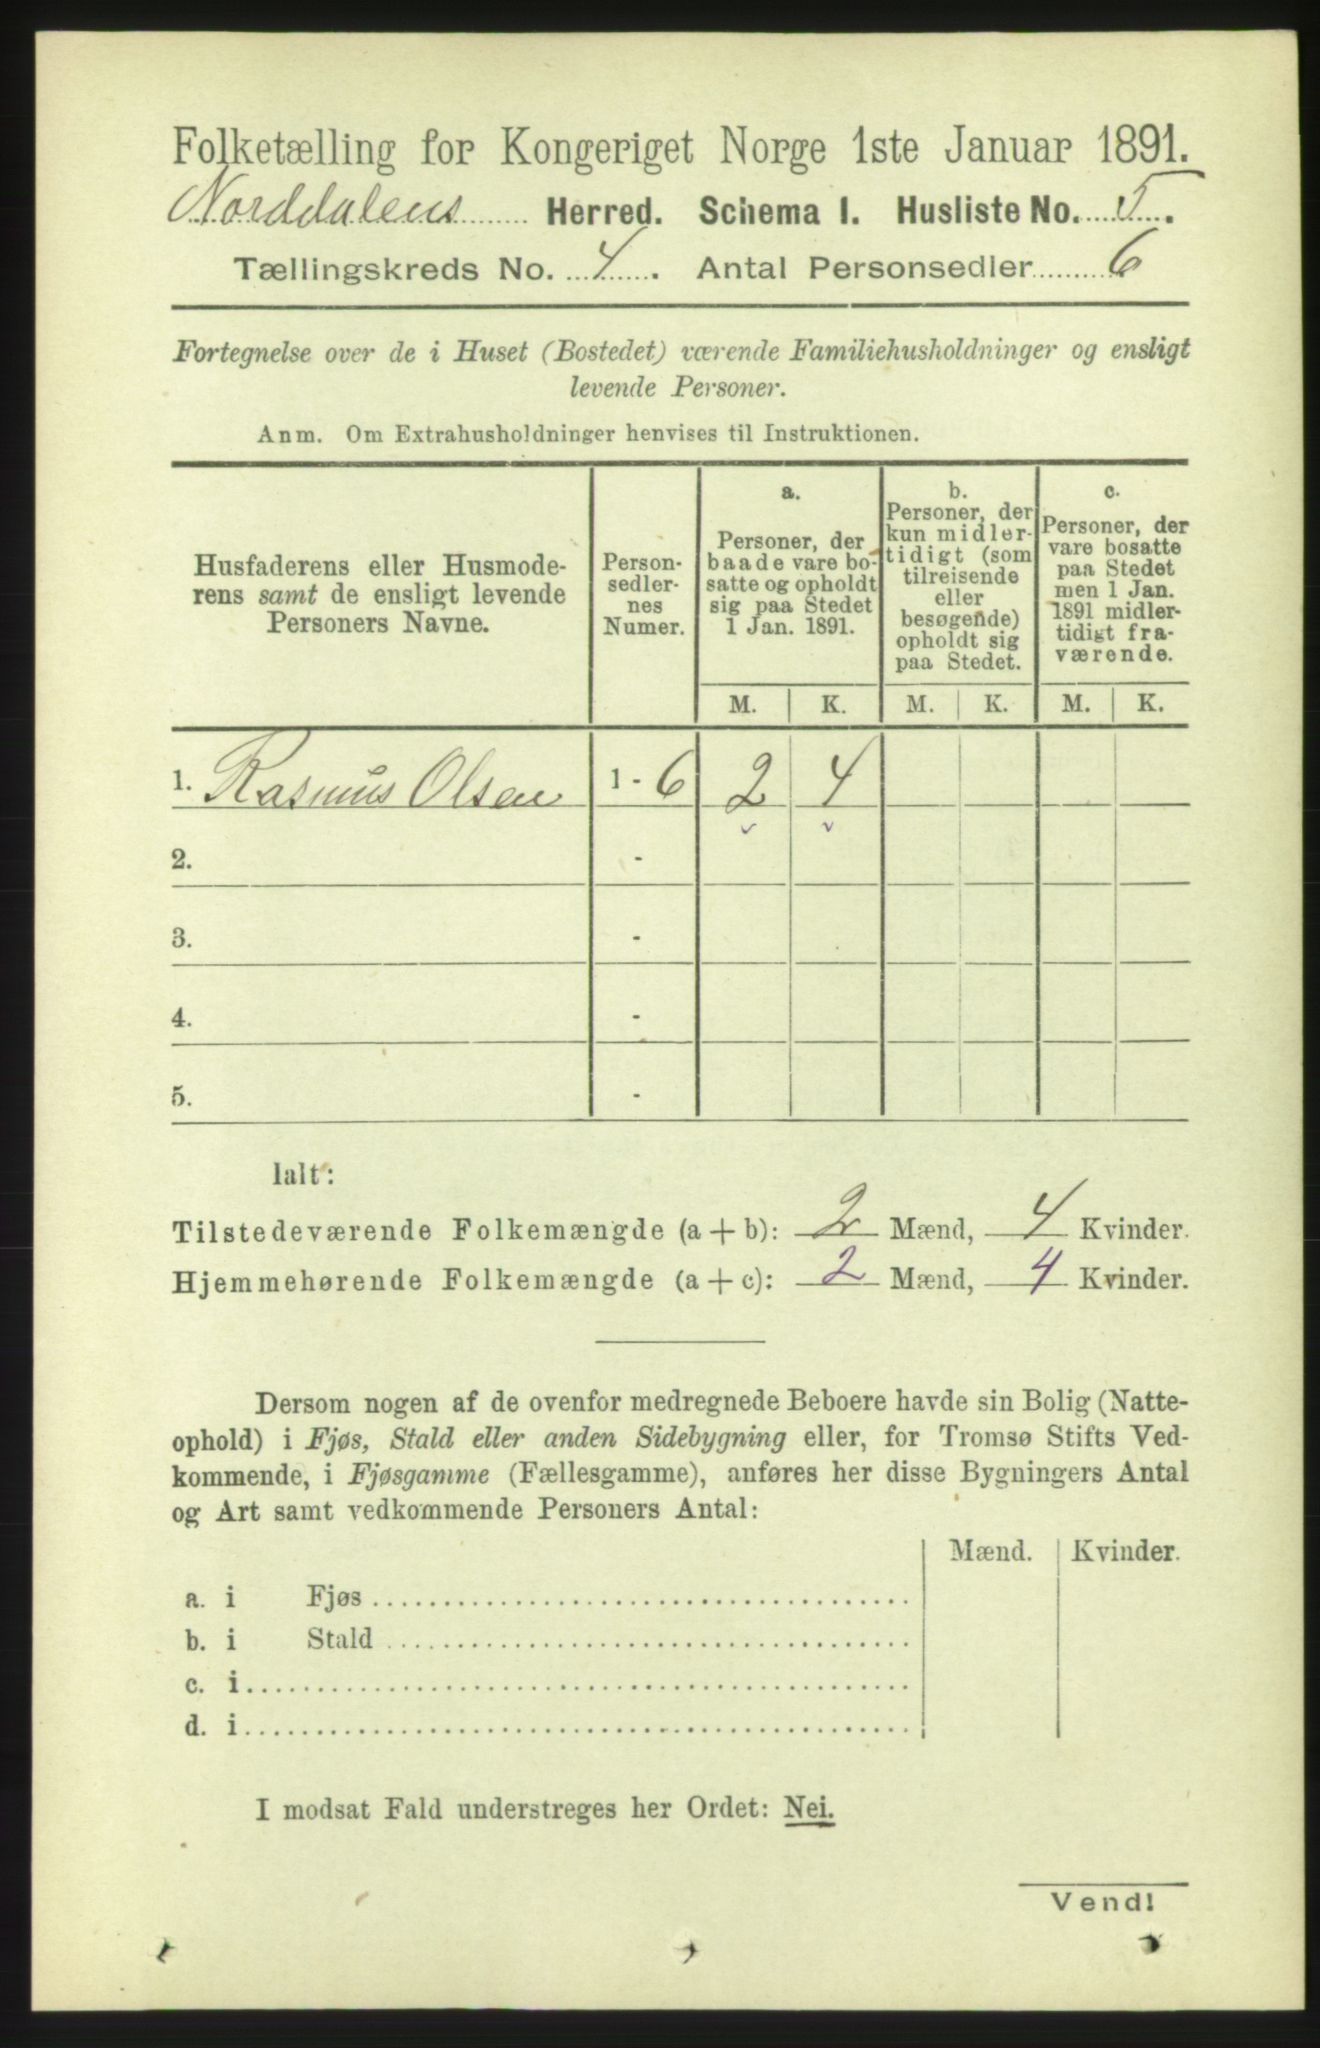 Folketælling for Kongeriget Norge 1ste Januar 1891.
Norddalens Herred. Schema I. Husliste No. 5.
Tællingskreds No. 4. Antal Personsedler 6
Fortegnelse over de i Huset (Bostedet) værende Familiehusholdninger og ensligt
levende Personer.
Anm. Om Extrahusholdninger henvises til Instruktionen.
Husfaderens eller Husmode-
rens samt de ensligt levende
Personers Navne.
Person-
sedler-
nes
Numer.
a.
Personer, der
baade vare bo-
satte og opholdt
sig paa Stedet
1 Jan. 1891.
b.
Personer, der
kun midler-
tidigt (som
tilreisende
eller
besøgende)
opholdt sig
paa Stedet.
c.
Personer, der
vare bosatte
paa Stedet
men 1 Jan.
1891 midler-
tidigt fra-
værende.
M. K. M. K. M. K.
1. Rasmus Olsen 1 - 6 2 4
2. -
3. -
4. -
5. -
Ialt:
Tilstedeværende Folkemængde (a + b): 2 Mænd, 4 Kvinder.
Hjemmehørende Folkemængde (a + c): 2 Mænd, 4 Kvinder.
Dersom nogen af de ovenfor medregnede Beboere havde sin Bolig (Natte-
ophold) i Fjøs, Stald eller anden Sidebygning eller, for Tromsø Stifts Ved-
kommende, i Fjøsgamme (Fællesgamme), anføres her disse Bygningers Antal
og Art samt vedkommende Personers Antal:
Mænd. Kvinder.
a. i Fjøs
b. i Stald
c. i
d. i
I modsat Fald understreges her Ordet: Nei.
Vend!